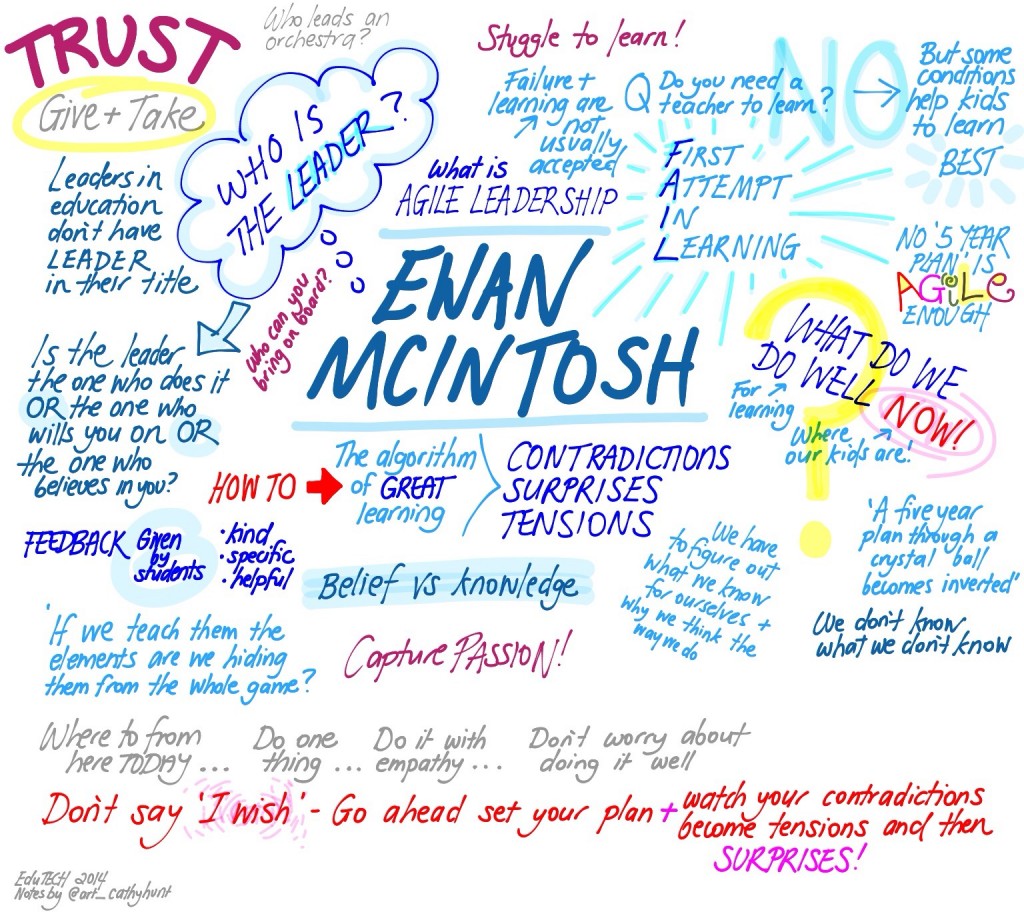 TRUST
Give + Take
Who leads an
orchestra?
WHO IS
THE LEADER?
Leaders in
education
don't have
LEADER
in their title
who can you
bring on board?
Is the leader
the one who does it
OR the one who
wills you on OR
the one who
believes in you?
Stuggle to learn!
Failure +
learning are
not
usually
accepted
Q Do you need a
teacher to learn?
NO
But some
conditions
help kids
to learn
BEST
FIRST
ATTEMPT
IN
LEARNING
what is
AGILE LEADERSHIP
EWAN
MCINTOSH
NO '5 YEAR
PLAN' IS
AGiLe
ENOUGH
?
WHAT DO WE
DO WELL
NOW!
For
learning
Where
our kids are!
HOW TO
The algorithm
of GREAT
learning
CONTRADICTIONS
SURPRISES
TENSIONS
FEEDBACK
Given
by
students
• kind
• specific
• helpful
Belief vs knowledge
We have
to figure out
what we know
for ourselves +
why we think the
way we do
'A five year
plan through a
crystal ball
becomes inverted'
We don't know
what we don't know
'If we teach them the
elements are we hiding
them from the whole game?
Capture PASSION!
Where to from
here TODAY ...
Do one
thing ...
Do it with
empathy ...
Don't worry about
doing it well
Don't say 'I wish' - Go ahead set your plan +
watch your contradictions
become tensions and then
SURPRISES!
EduTECH 2014
Notes by @art_cathyhunt